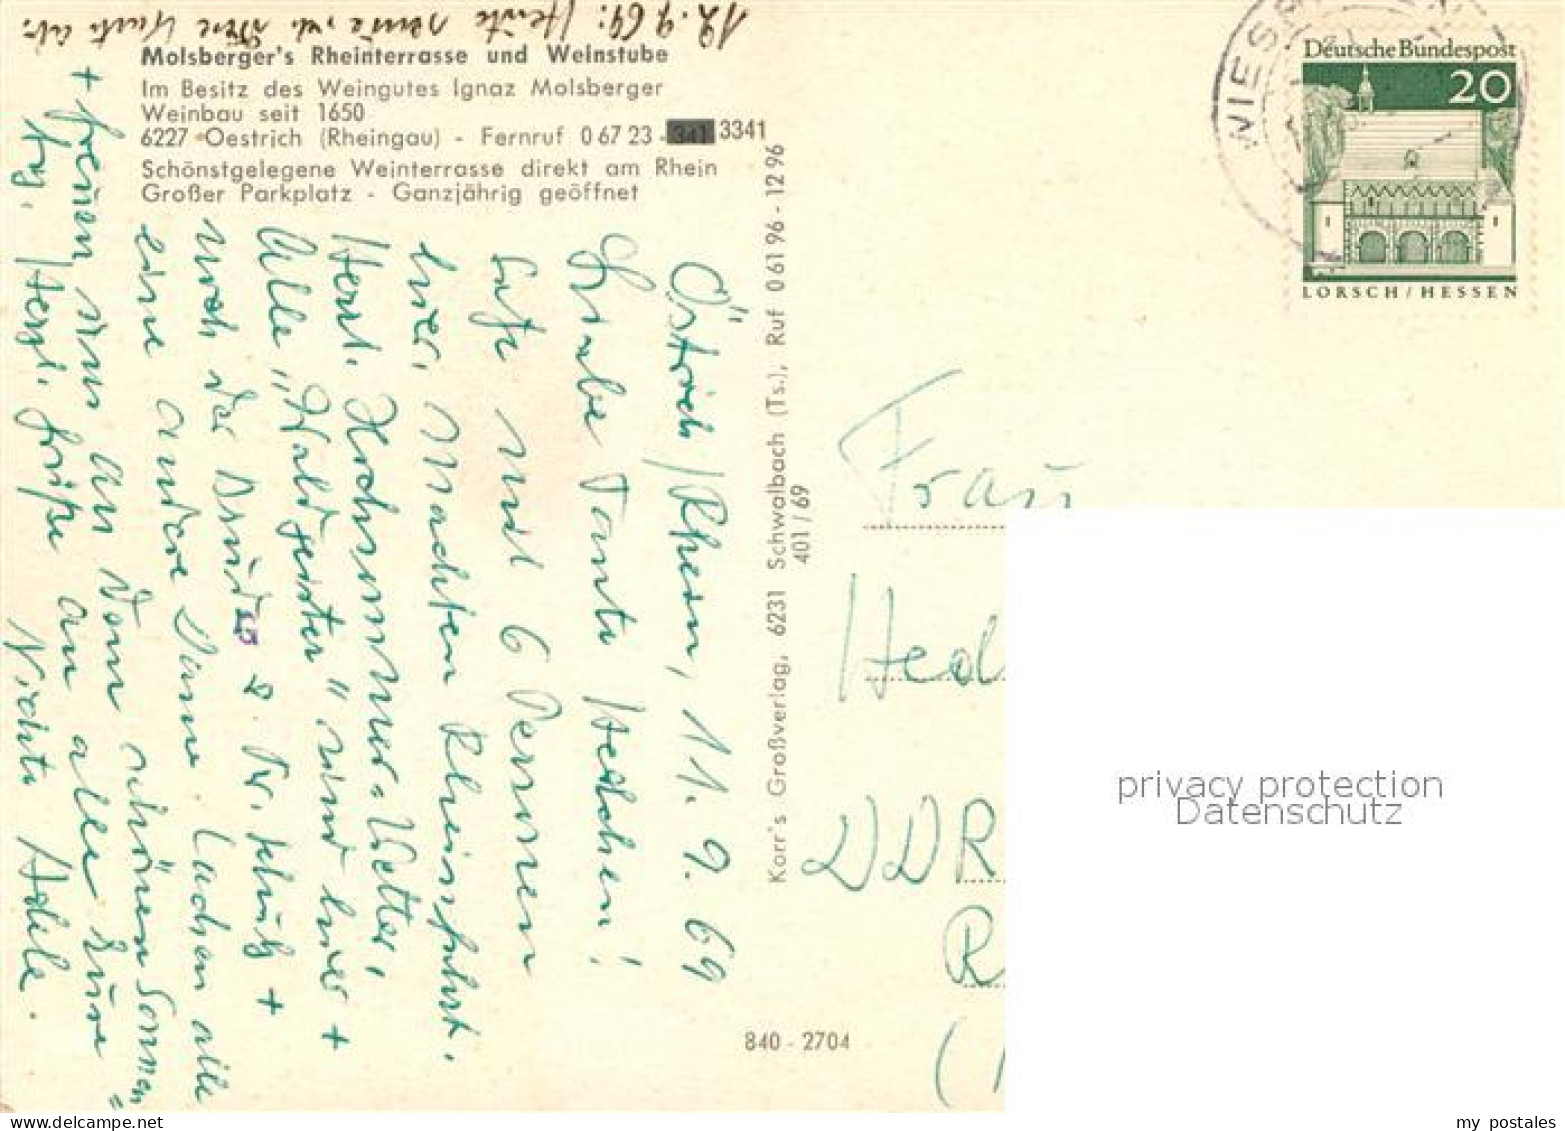 Molsberger's Rheinterrasse und Weinstube
Im Besitz des Weingutes Ignaz Molsberger
Weinbau seit 1650
6227 Oestrich (Rheingau) - Fernruf 0 67 23 - 341 3341
Schönstgelegene Weinterrasse direkt am Rhein
Großer Parkplatz - Ganzjährig geöffnet
12.9.69: Heute
Östrich/Rhein, 11. 9. 69
Liebe Tante Hedchen!
mit 6 Personen
hier, machten Rheinfahrt.
Herrl. Hochsommer-Wetter,
Alle "Waldgeister" sind hier +
noch der Bruder v. Fr. Schulz +
eine andere Dame. Lachen alle
+ freuen uns an dem schönen Sonnen=
tag. Herzl. Grüße an alle Eure
Nichte Adele.
Korr's Großverlag, 6231 Schwalbach (Ts.), Ruf 0 61 96 - 12 96
401 / 69
840 - 2704
WIESB
Deutsche Bundespost
20
LORSCH / HESSEN
Frau
Hed
DDR
R
(1
privacy protection
Datenschutz
my postales